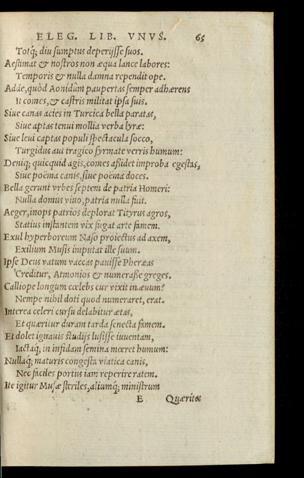 ELEG. LIB. VNVS. 65
Totq; diu sumptus deperijsse suos.
Aestimat & nostros non æqua lance labores:
Temporis & nulla damna rependit ope.
Adde, quòd Aonidum paupertas semper adhærens
It comes, & castris militat ipsa suis.
Siue canas acies in Turcica bella paratas,
Siue aptas tenui mollia verba lyræ:
Siue leui captas populi spectacula socco,
Turgidus aut tragico syrmate verris humum:
Deniq; quicquid agis, comes assidet improba egestas,
Siue poëma canis, siue poëma doces.
Bella gerunt vrbes septem de patria Homeri:
Nulla domus viuo, patria nulla fuit.
Aeger, inops patrios deplorat Tityrus agros,
Statius instantem vix fugat arte famem.
Exul hyperboreum Naso proiectus ad axem,
Exilium Musis imputat ille suum.
Ipse Deus vatum vaccas pauisse Pheræas
Creditur, Aemonios & numerasse greges.
Calliope longum cœlebs cur vixit in æuum?
Nempe nihil doti quod numeraret, erat.
Interea celeri cursu delabitur ætas,
Et quæritur duram tarda senecta famem.
Et dolet ignauis studijs lusisse iuuentam,
Iactaq; in infidam semina mœret humum:
Nullaq; maturis congesta viatica canis,
Nec faciles portus iam reperire ratem.
Ite igitur Musæ steriles, aliumq; ministrum
E Quærite